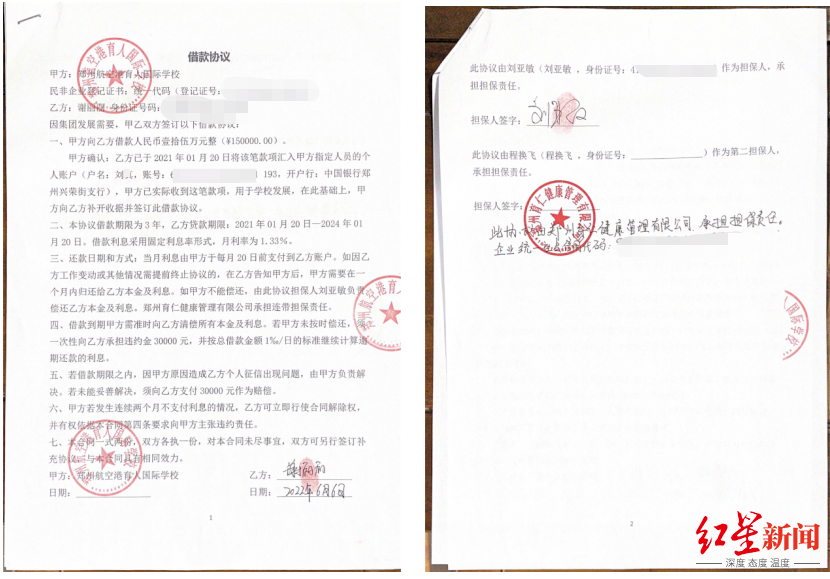 借款协议
甲方：郑州航空港育人国际学校
民非企业登记证书：统一代码（登记证号：
乙方：谢 身份证号码：
因集团发展需要，甲乙双方签订以下借款协议：
一、甲方向乙方借款人民币壹拾伍万元整（¥150000.00）。
甲方确认：乙方已于 2021 年 01 月 20 日将该笔款项汇入甲方指定人员的个
人账户（户名：刘 ，账号：6 1 193，开户行：中国银行郑
州兴荣街支行），甲方已实际收到这笔款项，用于学校发展，在此基础上，甲
方向乙方补开收据并签订此借款协议。
二、本协议借款期限为3年，乙方贷款期限：2021 年 01 月 20 日—2024 年 01
月 20 日。借款利息采用固定利息率形式，月利率为 1.33%。
三、还款日期和方式：当月利息由甲方于每月 20 日前支付到乙方账户。如因乙
方工作变动或其他情况需提前终止协议的，在乙方告知甲方后，甲方需要在一
个月内归还给乙方本金及利息。如甲方不能偿还，由此协议担保人刘亚敏负责
偿还乙方本金及利息。郑州育仁健康管理有限公司承担连带担保责任。
四、借款到期甲方需准时向乙方清偿所有本金及利息。若甲方未按时偿还，须
一次性向乙方承担违约金 30000 元，并按总借款金额 1‰/日的标准继续计算逾
期还款的利息。
五、若借款期限之内，因甲方原因造成乙方个人征信出现问题，由甲方负责解
决。若未能妥善解决，须向乙方支付 30000 元作为赔偿。
六、甲方若发生连续两个月不支付利息的情况，乙方可立即行使合同解除权，
并有权依据本合同第四条要求向甲方主张违约责任。
七、本合同一式两份，双方各执一份，对本合同未尽事宜，双方可另行签订补
充协议，与本合同具有相同效力。
甲方：郑州航空港育人国际学校
乙方：
日期：
日期：2022年6月6日
1
此协议由刘亚敏（刘亚敏 ，身份证号：4 作为担保人，承
担担保责任。
担保人签字：刘亚敏
此协议由程换飞（程换飞 ，身份证号： ）作为第二担保人，
承担担保责任。
担保人签字：
此协议由郑州育仁健康管理有限公司承担担保责任。
企业统一社会信用代码：9
2
红星新闻
深度 态度 温度